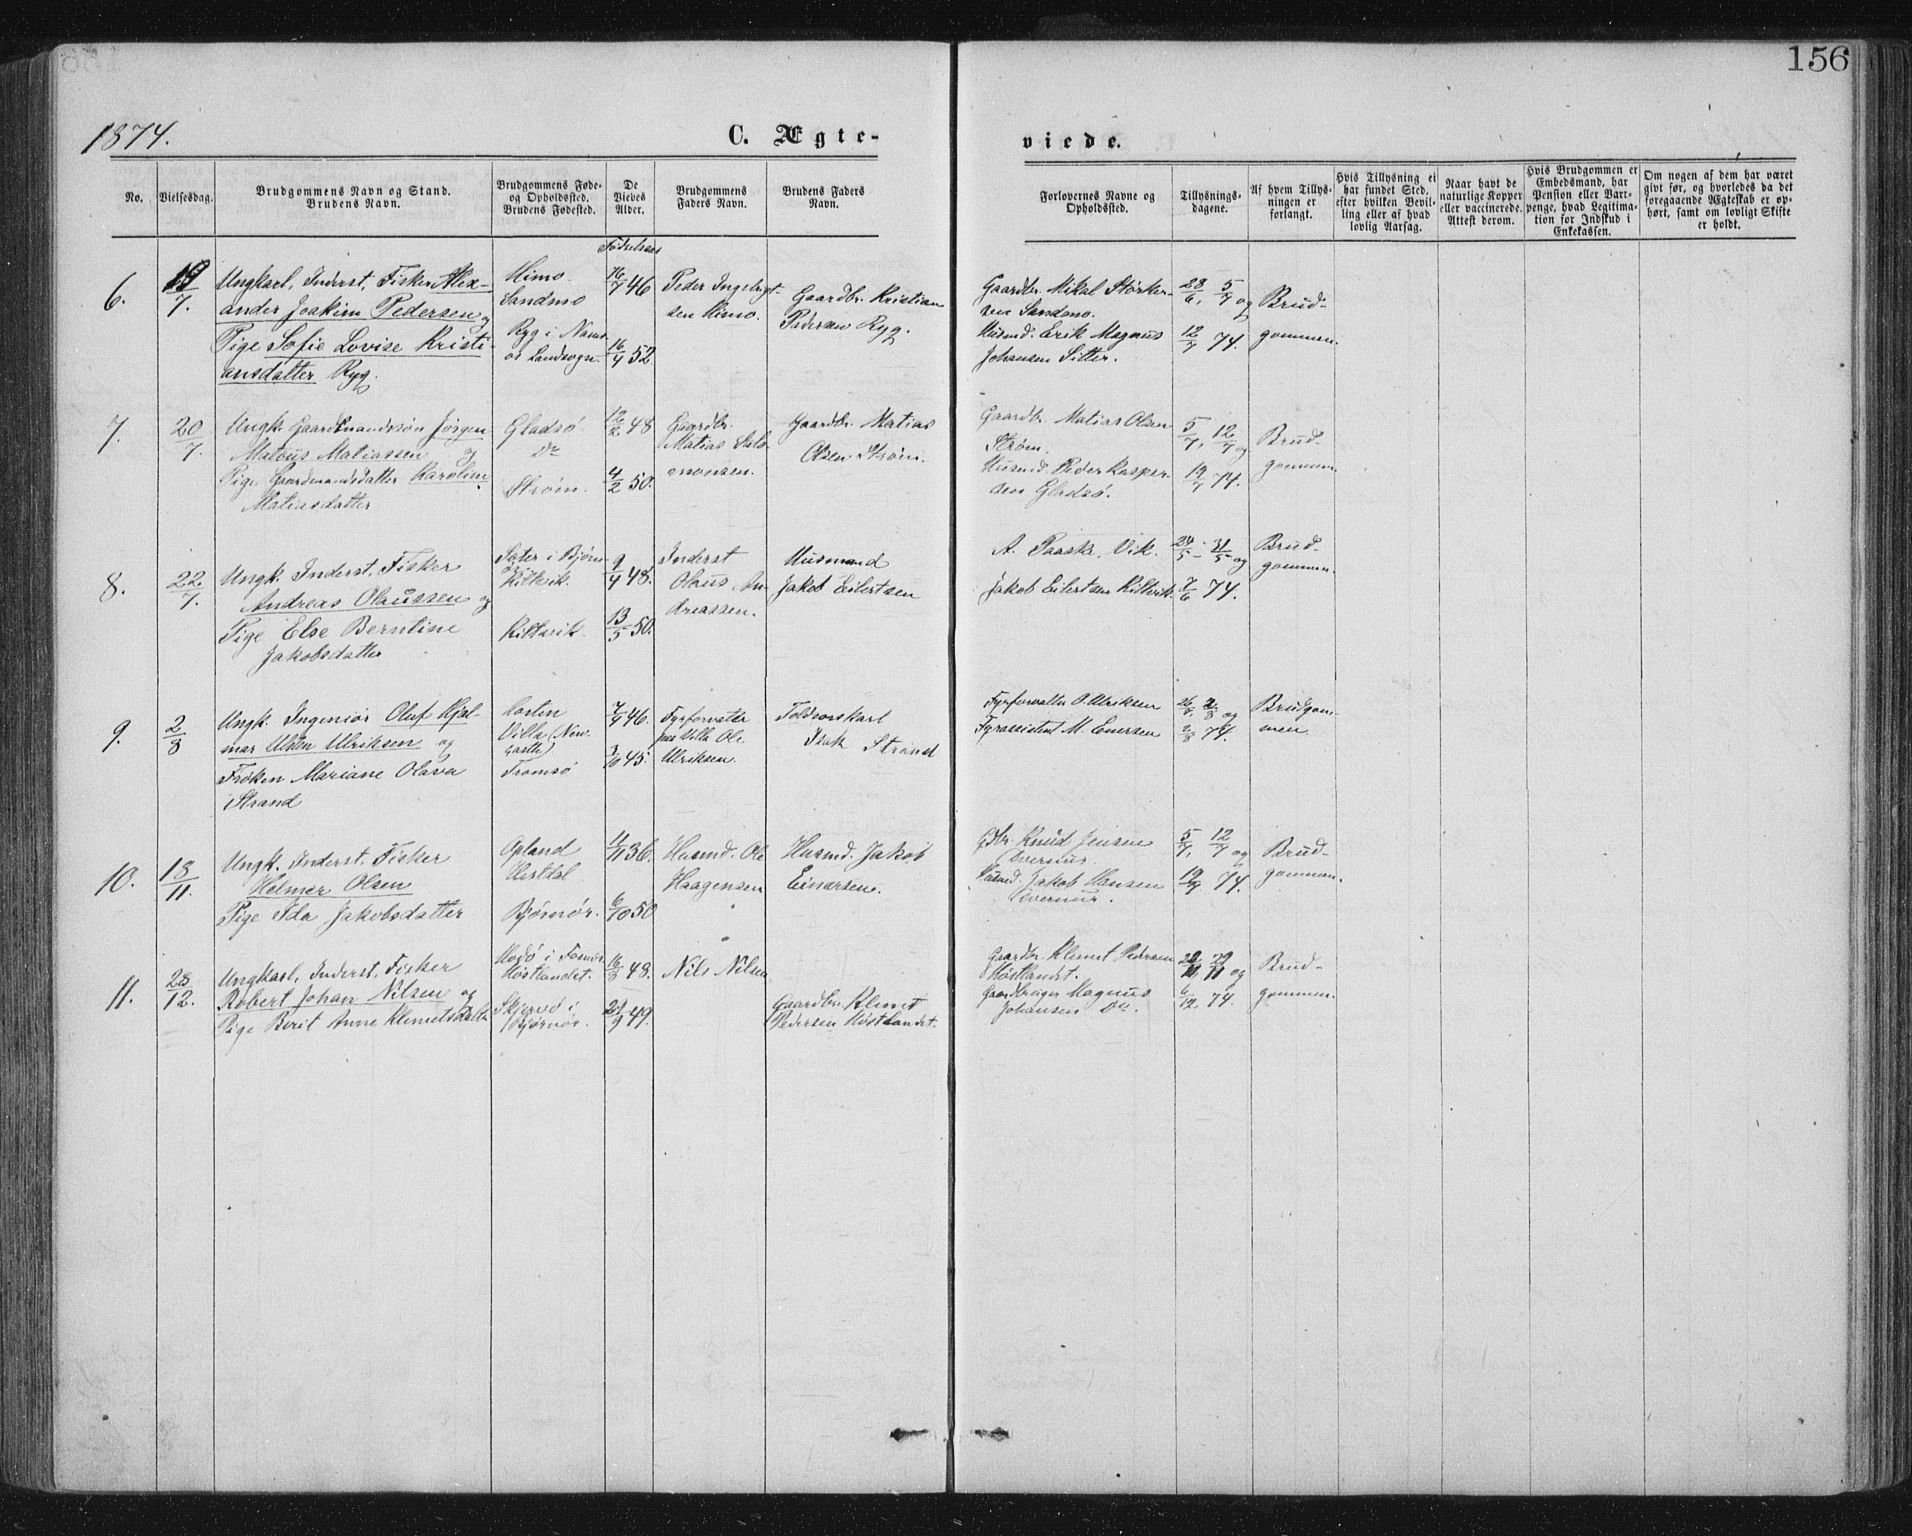 156
1874.
C. Ægte-
viede.
No.
Vielsesdag.
Brudgommens Navn og Stand.
Brudens Navn.
Brudgommens Føde-
og Opholdssted.
Brudens Fødested.
De
Vieves
Alder.
Brudgommens
Faders Navn.
Brudens Faders
Navn.
Forlovernes Navne og
Opholdssted.
Tillysnings-
dagene.
Af hvem Tillys-
ningen er
forlangt.
Hvis Tillysning ei
har fundet Sted,
efter hvilken Bevil-
ling eller af hvad
lovlig Aarsag.
Naar havt de
naturlige Kopper
eller vaccinerede.
Attest derom.
Hvis Brudgommen er
Embedsmand, har
Pension eller Vart-
penge, hvad Legitima-
tion for Indskud i
Enkekassen.
Om nogen af dem har været
givt før, og hvorledes da det
foregaaende Ægteskab er op-
hørt, samt om lovligt Skifte
er holdt.
6.
19/7.
Ungkarl, Inderst, Fisker Alex-
ander Joakim Pedersen og
Pige Sofie Lovise Kristi-
ansdatter Ryg.
Himo
Sandmo
Ryg i Nams-
os Landsogn.
16/7 46
16/4 52
Peder Ingebrigt-
sen Himo.
Gaardbr. Kristian
Pedersen Ryg.
Gaardbr. Mikal Størker-
sen Sandmo.
Husmd. Erik Magnus
Johansen Sitter.
28/6, 5/7 og
12/7 74.
Brud-
gommen.
7.
20/7.
Ungk. Gaardmandssøn Jørgen
Matous Matiassen og
Pige Gaardmandsdatter Karoline
Matiasdatter
Gladsø
Do
Strøm.
12/2 48
4/2 50.
Gaardbr.
Matias Salo-
monsen.
Gaardbr. Matias
Olsen Strøm.
Gaardbr. Matias Olsen
Strøm.
Husmd. Peder Kasper-
sen Gladsø.
5/7, 12/7 og
19/7 74.
Brud-
gommen
8.
22/7.
Ungk. Inderst, Fisker
Andreas Olaussen og
Pige Else Berntine
Jakobsdatter
Sæter i Bjørn-
ør.
Kiltvik.
Kiltvik.
9/4 48.
13/5 50.
Inderst
Olaus An-
dreassen.
Husmand
Jakob Eilertsen
A. Paaske, Vik.
Jakob Eilertsen Kiltvik.
24/5, 31/5 og
7/6 74.
Brud-
gommen.
9.
2/8
Ungk. Ingeniør Oluf Hjal-
mar Ulriksen og
Frøken Mariane Olava
Strand
Villa (New-
castle)
Tromsø
7/9 46.
3/10 45.
Fyrforvalter
paa Villa Ole
Ulriksen.
Toldroerskarl
Isak Strand
Fyrforvalter O. Ulriksen
Fyrassistent M. Enersen
og
74.
Brudgom-
men
10.
18/11.
Ungk. Inderst, Fisker
Helmer Olsen
Pige Ida Jakobsdatter
Opland
Bjørnør.
4/11 36.
6/10 50
Husmd. Ole
Haagensen
Husmd. Jakob
Einarsen.
Gdbr. Knud Jensen
Husmd. Jakob Hansen
5/7, 12/7 og
19/7 74.
Brud-
gommen.
11.
28/12.
Ungkarl, Inderst, Fisker
Robert Johan Nilsen og
Pige Berit Anne Klemetsdatter
Hodø i Fosnæs
Høstlandet.
Skjervø i
Bjørnør.
16/8 48.
24/9 49.
Nils Nilsen
Gaardbr. Klemet
Pedersen Høstlandet.
Gaardbr. Klemet Pedersen
Høstlandet.
Gaardbruger Magnus
Johansen Do.
22/11, 29/11 og
6/12. 74.
Brud-
gommen.